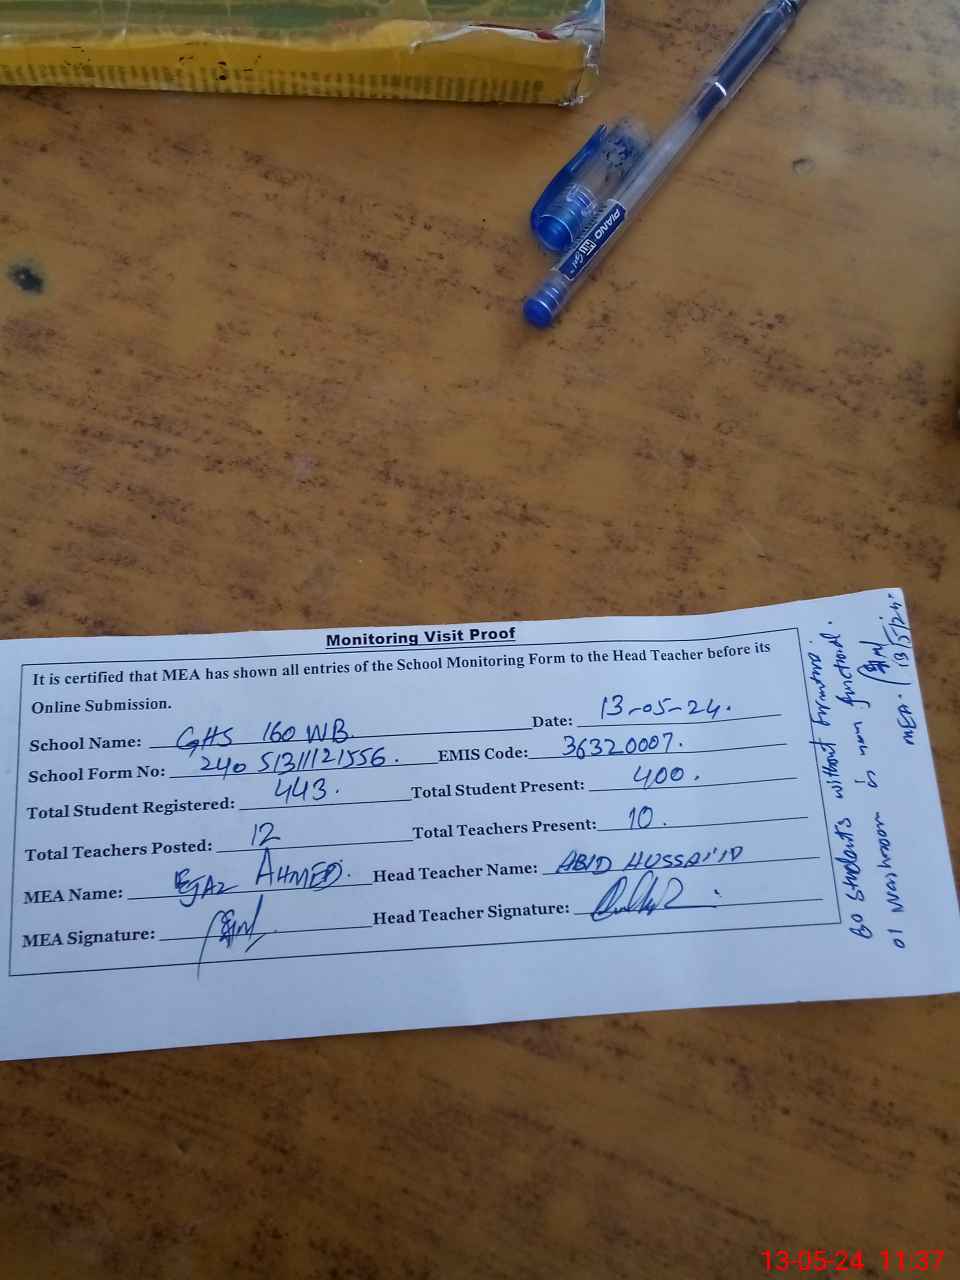 PIANO
Gel
Monitoring Visit Proof
It is certified that MEA has shown all entries of the School Monitoring Form to the Head Teacher before its
Online Submission.
School Name: GHS 160 WB. Date: 13-05-24.
School Form No: 240 51311121556. EMIS Code: 36320007.
Total Student Registered: 443. Total Student Present: 400.
Total Teachers Posted: 12 Total Teachers Present: 10.
MEA Name: EJAZ AHMED. Head Teacher Name: ABID HUSSAIN
MEA Signature: Head Teacher Signature:
80 Students without furniture.
01 Washroom is non functional.
MEA. 13/5/24.
13-05-24 11:37